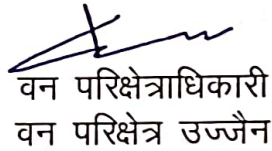 वन परिक्षेत्राधिकारी
वन परिक्षेत्र उज्जैन